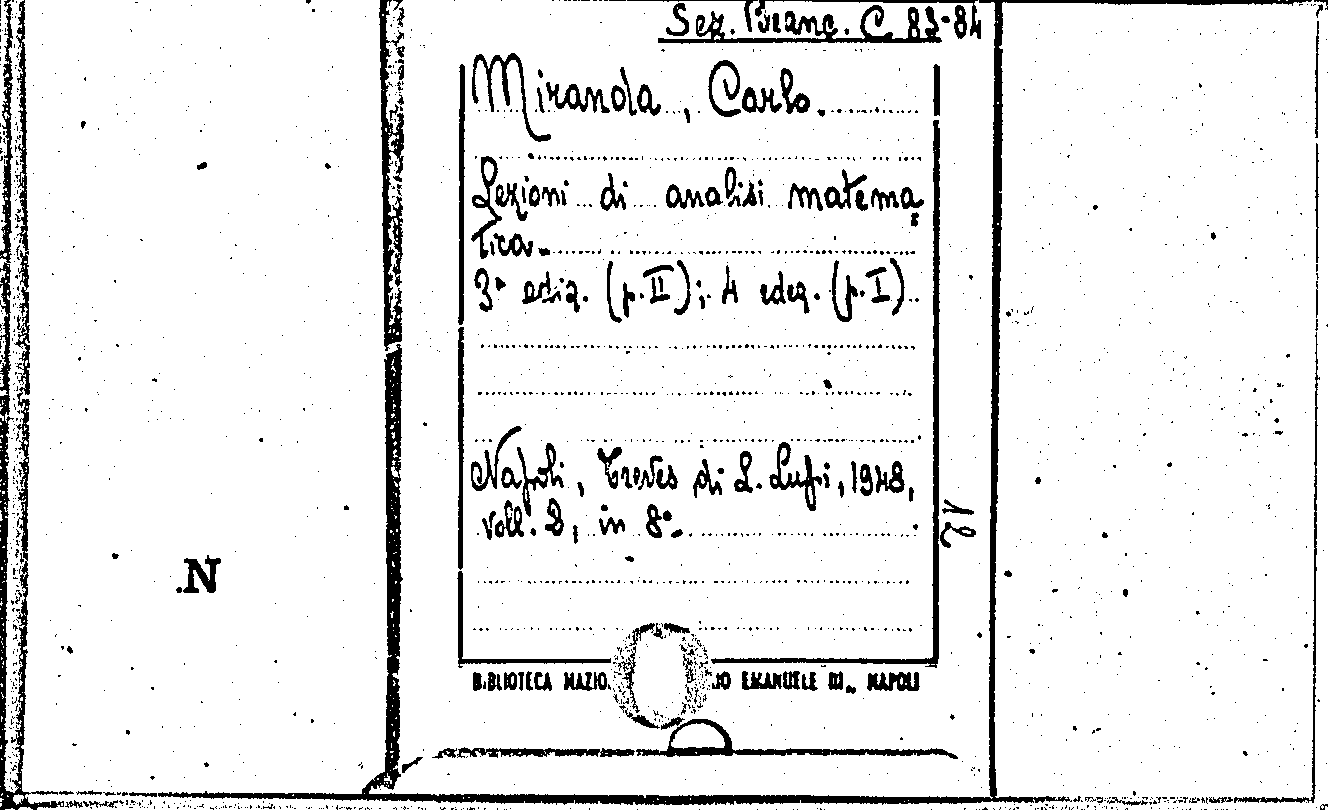 Sez. Branc. C 83-84
Miranda, Carlo.
Lezioni di analisi matema=
tica.
3ª ediz. (p. II); 4 edez. (p. I).
Napoli, Treves di L. Lupi, 1948,
voll. 2, in 8°.
N
BIBLIOTECA EMANUELE III., NAPOLI